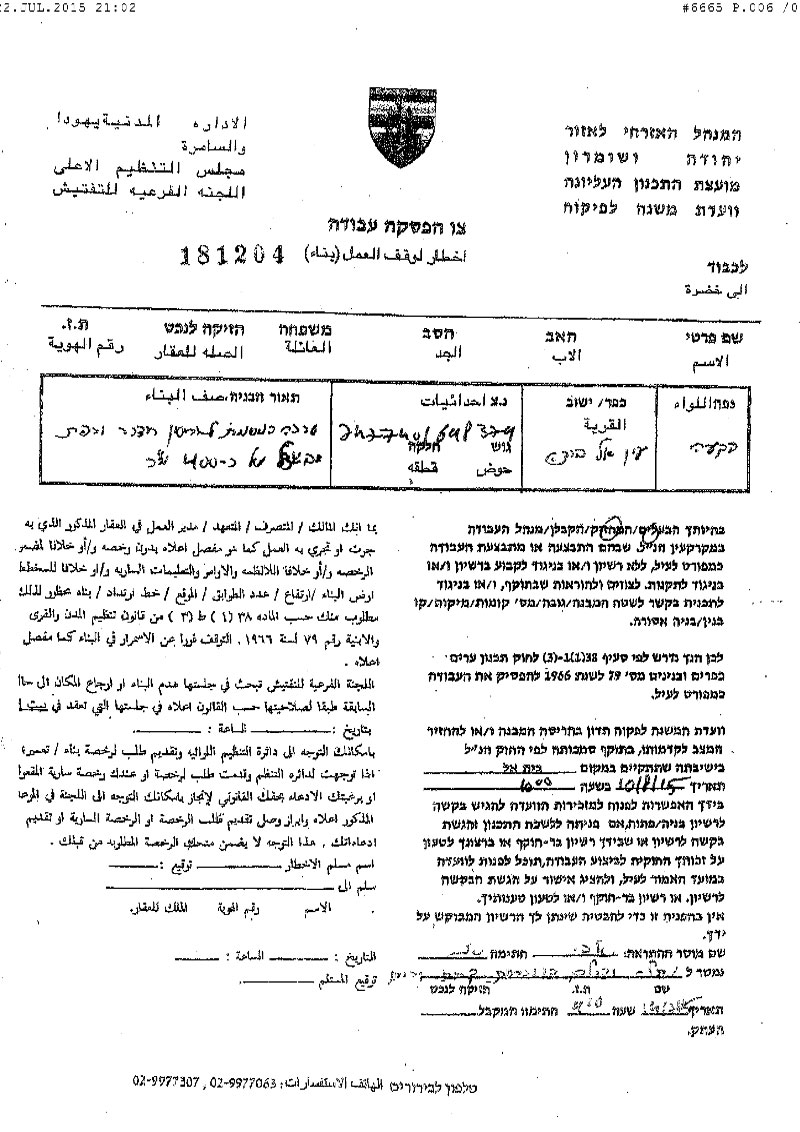 22.JUL.2015 21:02 #6665 P.006 /0
המנהל האזרחי לאזור
יהודה ושומרון
מועצת התכנון העליונה
וועדת משנה לפיקוח
الاداره المدنية يهودا
والسامرة
مجلس التنظيم الاعلى
اللجنه الفرعيه للتفتيش
צו הפסקת עבודה
اخطار لوقف العمل (بناء) 181204
לכבוד
الى حضرة
שם פרטי האב הסב משפחה הזיקה לנכס ת.ז.
الاسم الاب الجد العائلة الصله للعقار رقم الهوية
נפה/اللواء כפר/ ישוב נ.צ احداثيات תאור הבניה، صف البناء
القرية
בקעה עין אל
גוש חלקה
حوض قطعه
בהיותך הבעלים/המחזיק/הקבלן/מנהל העבודה
במקרקעין הנ"ל, שבהם התבצעה או מתבצעת העבודה
כמפורט לעיל, ללא רשיון ו/או בניגוד לקבוע ברשיון ו/או
בניגוד לתקנות, לצווים ולהוראות שבתוקף, ו/או בניגוד
לתכנית בקשר לשטח המבנה/גובה/מס' קומות/מיקום/קו
בנין/בניה אסורה.
לכן הנך נדרש לפי סעיף 38(1)-(3) לחוק תכנון ערים
כפרים ובנינים מס' 79 לשנת 1966 להפסיק את העבודה
כמפורט לעיל.
וועדת המשנה לפקוח תדון בהריסת המבנה ו/או להחזיר
המצב לקדמותו, בתוקף סמכותה לפי החוק הנ"ל
בישיבתה שתתקיים במקום בית אל
תאריך 10/8/15 בשעה 1000
בידך האפשרות לפנות למזכירות הוועדה להגיש בקשה
לרשיון בניה/פתוח, אם פניתה ללשכת התכנון והגשת
בקשה לרשיון או שבידך רשיון בר-תוקף או ברצונך לטעון
על זכותך החוקית לביצוע העבודה, תוכל לפנות לוועדה
במועד האמור לעיל, ולהציג אישור על הגשת הבקשה
לרשיון, או רשיון בר-תוקף ו/או לטעון טענותיך.
אין בהפניה זו כדי להבטיח שינתן לך הרשיון המבוקש על
ידך.
שם מוסר ההתראה: חתימה
נמסר ל
שם ת.ז. הזיקה לנכס
תאריך שעה חתימת המקבל
העתק.
بما انك المالك / المتصرف / المتعهد / مدير العمل في العقار المذكور الذي به
جرت او تجري به العمل كما هو مفصل اعلاه بدون رخصه و/أو خلافا لمضمر
الرخصه و/أو خلافا للانظمه والاوامر والتعليمات الساريه و/او خلافا للمخطط
ارض البناء /ارتفاع / عدد الطوابق / الموقع / خط ارتداد / بناء محظور لذلك
مطلوب منك حسب الماده ٣٨ (١) ط (٣) من قانون تنظيم المدن والقرى
والابنية رقم ٧٩ لسنة ١٩٦٦، التوقف فورا عن الاستمرار في البناء كما مفصل
اعلاه .
اللجنة الفرعية للتفتيش تبحث في جلستها هدم البناء او ارجاع المكان الى حالته
السابقة طبقا لصلاحيتها حسب القانون اعلاه في جلستها التي تعقد في
بتاريخ : الساعة :
بامكانك التوجه الى دائرة التنظيم اللوائيه وتقديم طلب لرخصة بناء / تعمير،
اذا توجهت لدائره التنظم وقدمت طلب لرخصة او عندك رخصة سارية المفعول
او برغبتك الادعاء بحقك القانوني لإنجاز بامكانك التوجه الى اللجنة في الموعد
المذكور اعلاه وابراز وصل تقديم طلب الرخصة او الرخصة السارية او تقديم
ادعاءاتك . هذا التوجه لا يضمن منحك الرخصة المطلوبه من قبلك .
اسم مسلم الاخطار توقيع :
سلم الى
الاسم رقم الهوية المالك للعقار.
التاريخ : الساعة :
توقيع المستلم
טלפון לבירורים الهاتف الاستفسارات: 02-9977063 , 02-9977307